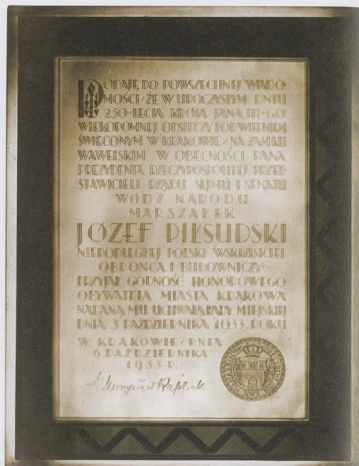 PODAJĘ DO POWSZECHNEJ WIADO-
MOŚCI, ŻE W UROCZYSTYM DNIU
250-LECIA KRÓLA JANA III-GO
WIEKOPOMNEJ ODSIECZY POD WIEDNIEM
ŚWIĘCONYM W KRAKOWIE, NA ZAMKU
WAWELSKIM W OBECNOŚCI PANA
PREZYDENTA RZECZYPOSPOLITEJ PRZED-
STAWICIELI RZĄDU SEJMU I SENATU
WÓDZ NARODU
MARSZAŁEK
JÓZEF PIŁSUDSKI
NIEPODLEGŁEJ POLSKI WSKRZESICIEL
OBROŃCA I BUDOWNICZY
PRZYJĄŁ GODNOŚĆ HONOROWEGO
OBYWATELA MIASTA KRAKOWA
NADANĄ MU UCHWAŁĄ RADY MIEJSKIEJ
DNIA 3 PAŹDZIERNIKA 1933 ROKU
W KRAKOWIE, DNIA
6 PAŹDZIERNIKA
1933 R.